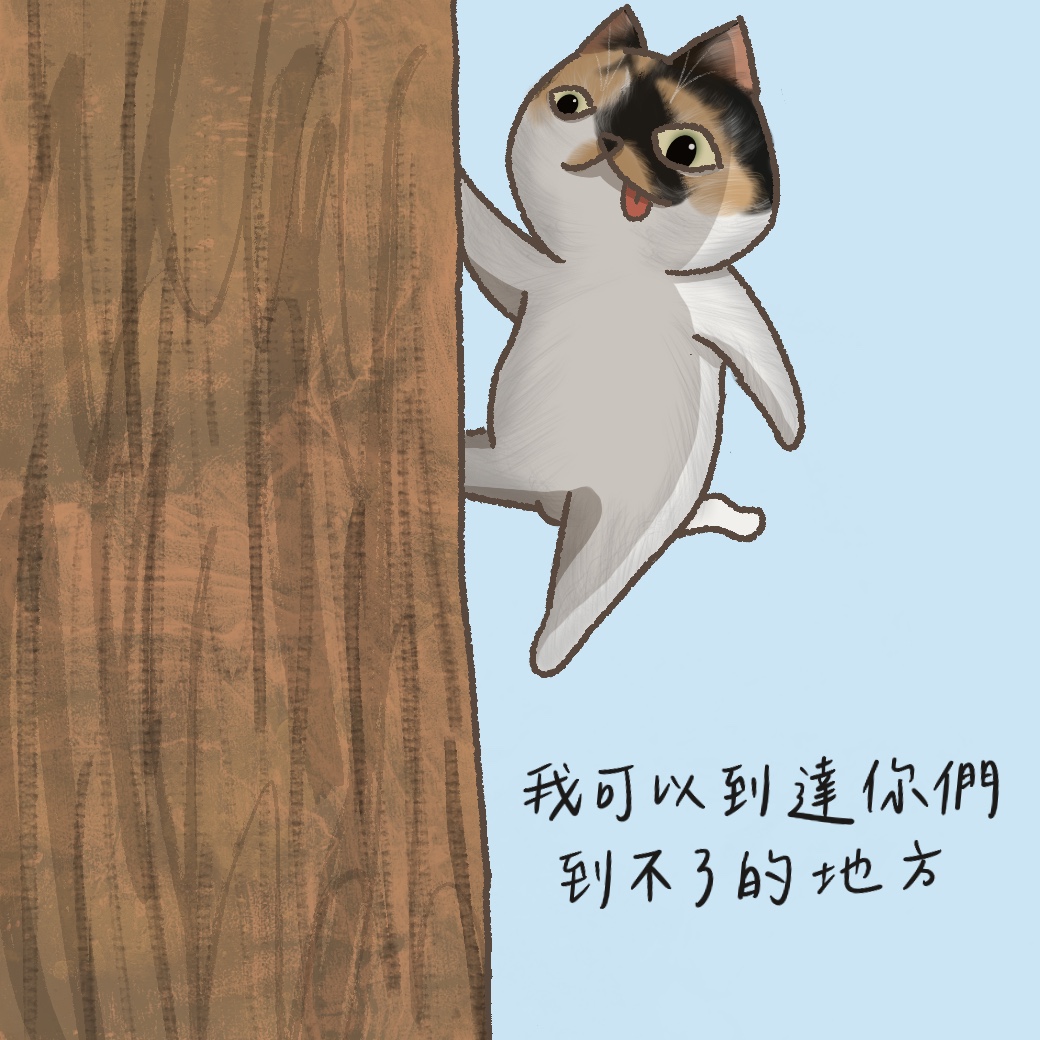 我可以到達你們
到不了的地方